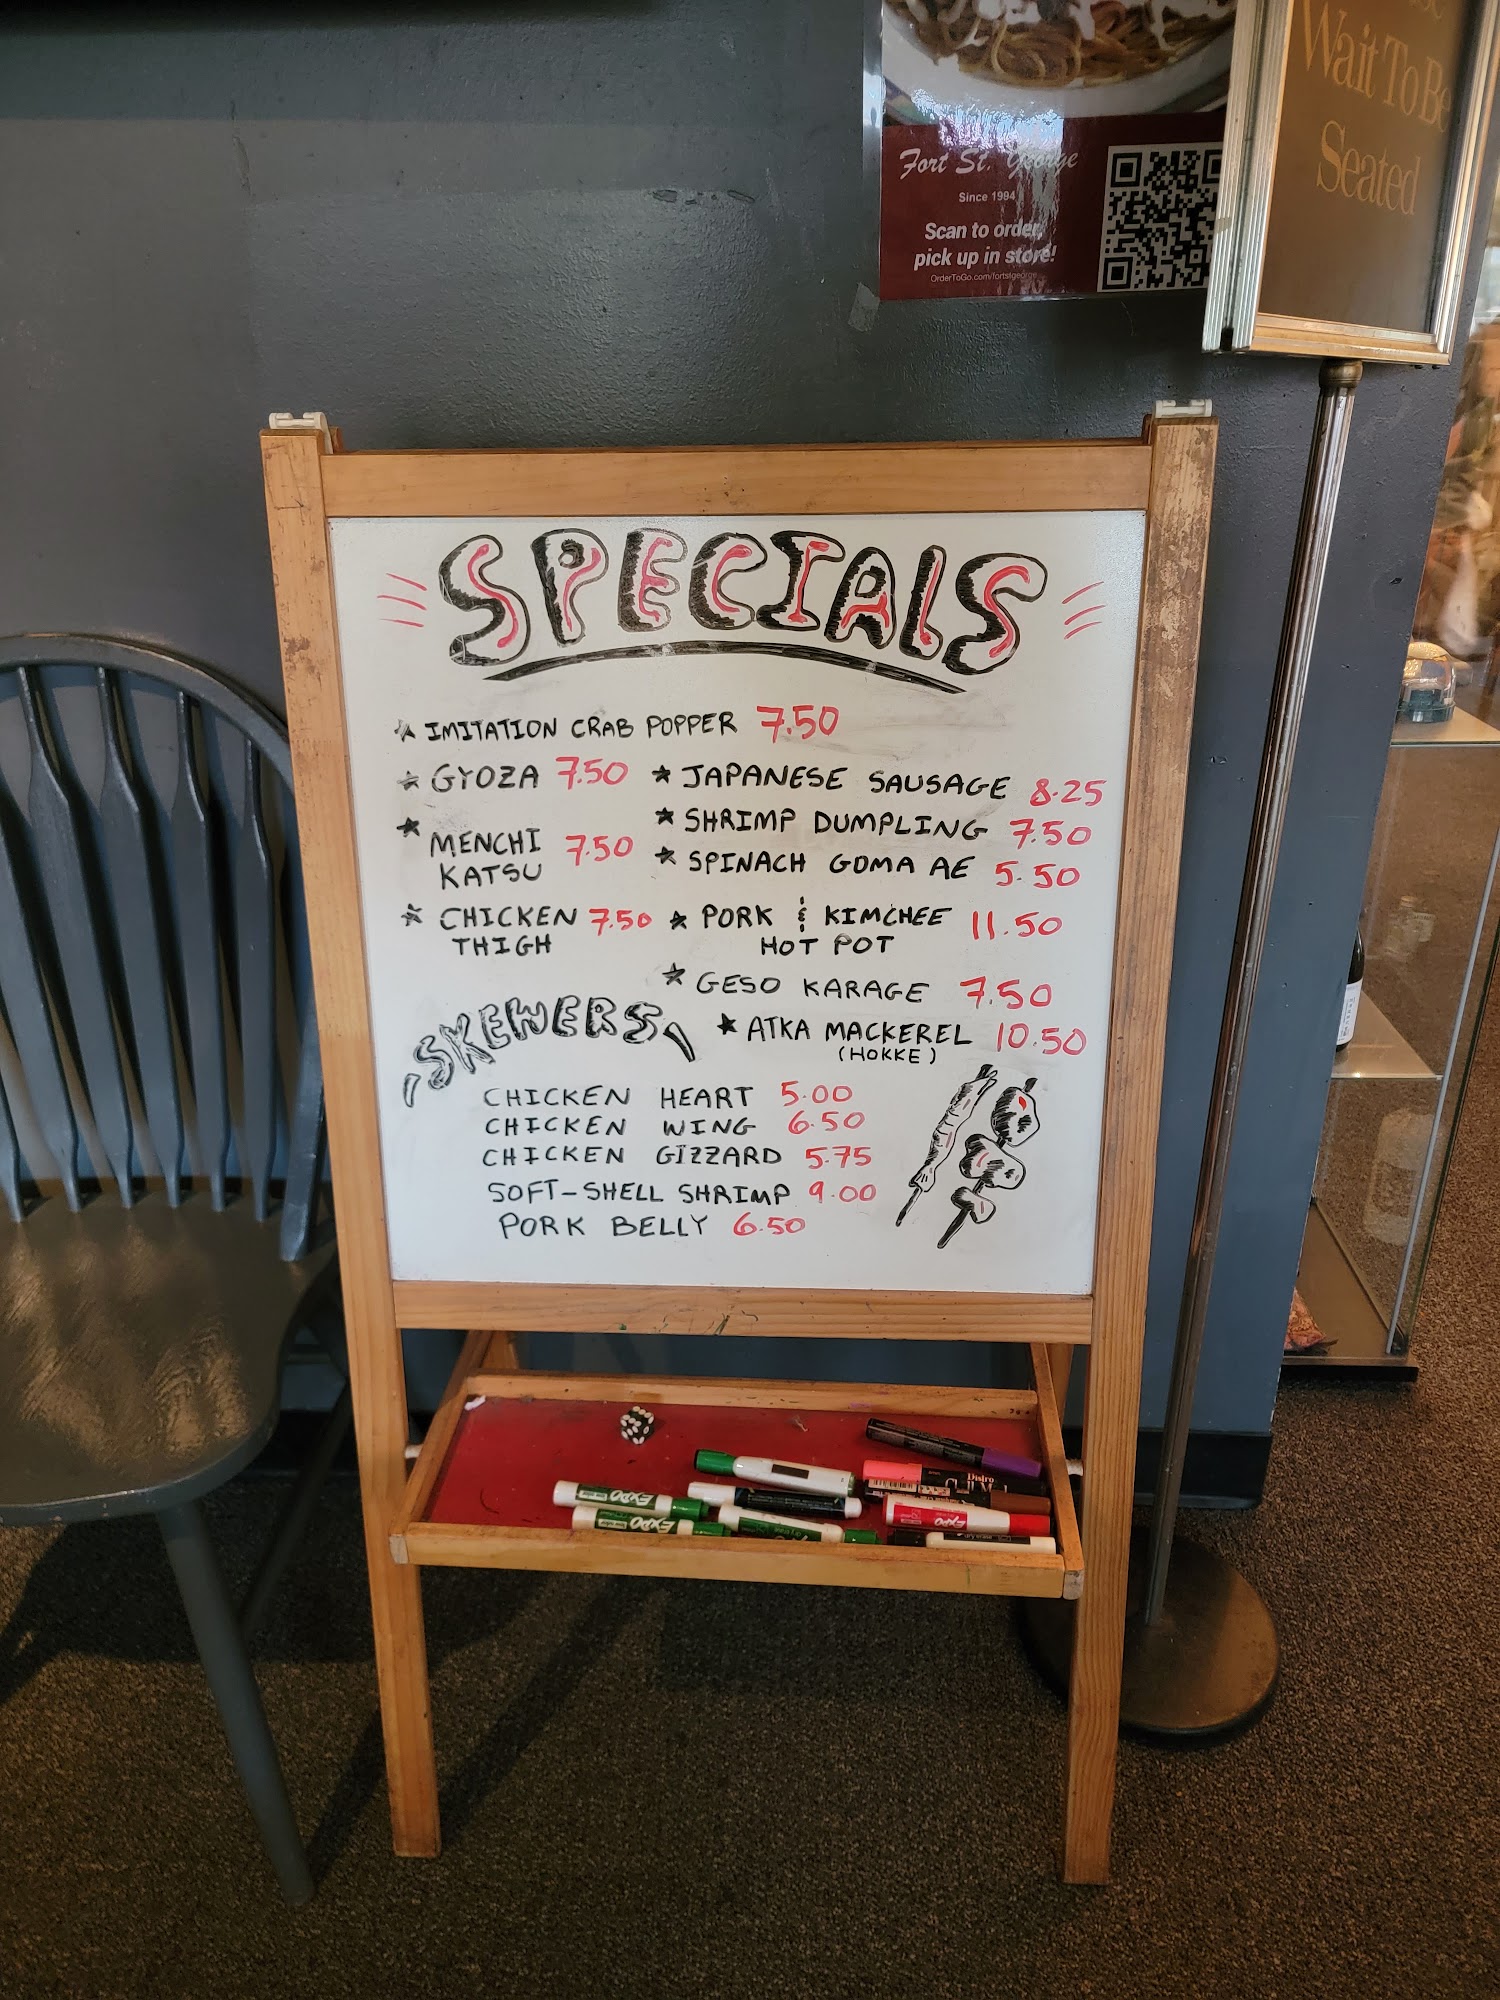 Wait To Be
Seated
Fort St. George
Since 1994
Scan to order,
pick up in store!
OrderToGo.com/fortstgeorge
SPECIALS
★ IMITATION CRAB POPPER 7.50
★ GYOZA 7.50
★ MENCHI
KATSU 7.50
★ CHICKEN 7.50
THIGH
★ JAPANESE SAUSAGE 8.25
★ SHRIMP DUMPLING 7.50
★ SPINACH GOMA AE 5.50
★ PORK & KIMCHEE 11.50
HOT POT
★ GESO KARAGE 7.50
★ ATKA MACKEREL 10.50
(HOKKE)
SKEWERS
CHICKEN HEART 5.00
CHICKEN WING 6.50
CHICKEN GIZZARD 5.75
SOFT-SHELL SHRIMP 9.00
PORK BELLY 6.50
EXPO
EXPO
EXPO